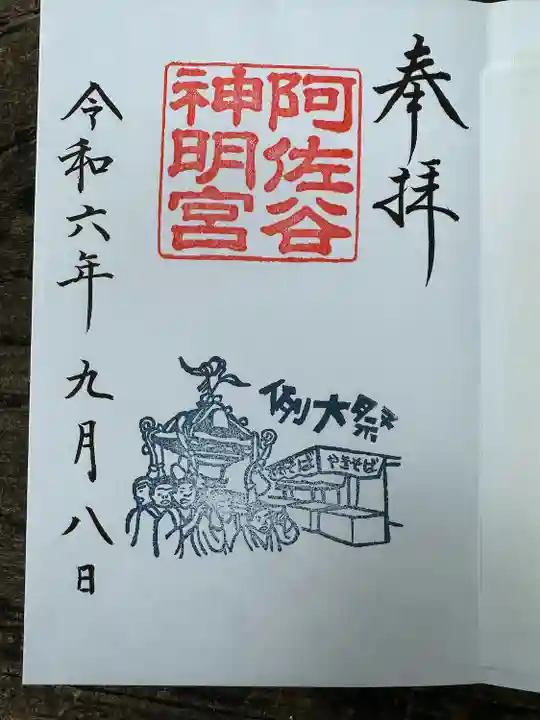 奉拝
阿佐谷
神明宮
例大祭
やきそば
やきそば
令和六年九月八日